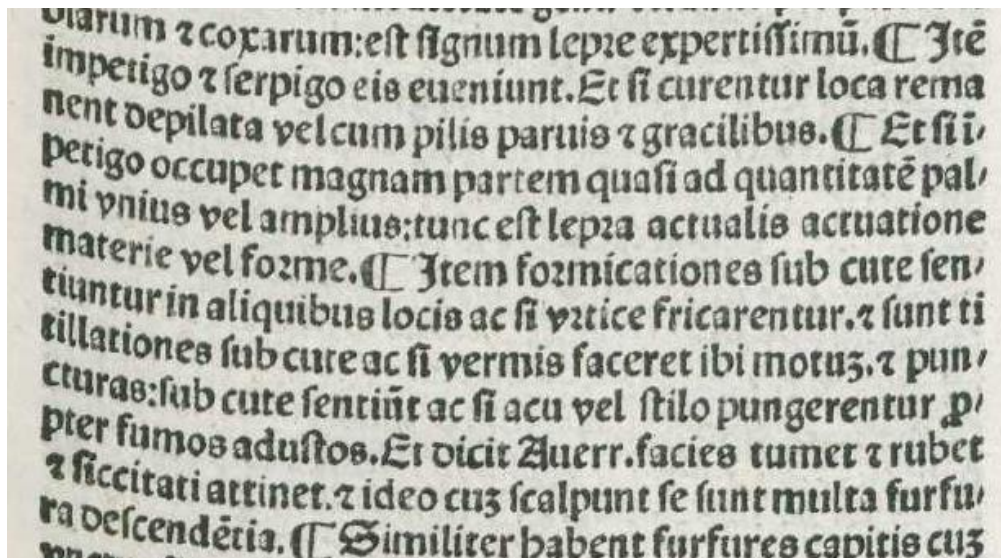 biarum ⁊ coxarum:eſt ſignum lepꝛe expertiſſimū.⸿ Itē
impetigo ⁊ ſerpigo eis eueniunt.Et ſi curentur loca rema
nent depilata vel cum pilis paruis ⁊ gracilibus.⸿ Et ſi ī⸗
petigo occupet magnam partem quaſi ad quantitatē pal⸗
mi vnius vel amplius:tunc eſt lepꝛa actualis actuatione
materie vel foꝛme.⸿ Item foꝛmicationes ſub cute ſen⸗
tiuntur in aliquibus locis ac ſi vꝛtice fricarentur.⁊ ſunt ti
tillationes ſub cute ac ſi vermis faceret ibi motuꝫ.⁊ pun⸗
cturas:ſub cute ſentiūt ac ſi acu vel ſtilo pungerentur ꝓ⸗
pter fumos aduſtos.Et dicit Auerr.facies tumet ⁊ rubet
⁊ ſiccitati attinet.⁊ ideo cuꝫ ſcalpunt ſe ſunt multa furfu⸗
ra deſcendētia.⸿ Similiter habent furfures capitis cuꝫ